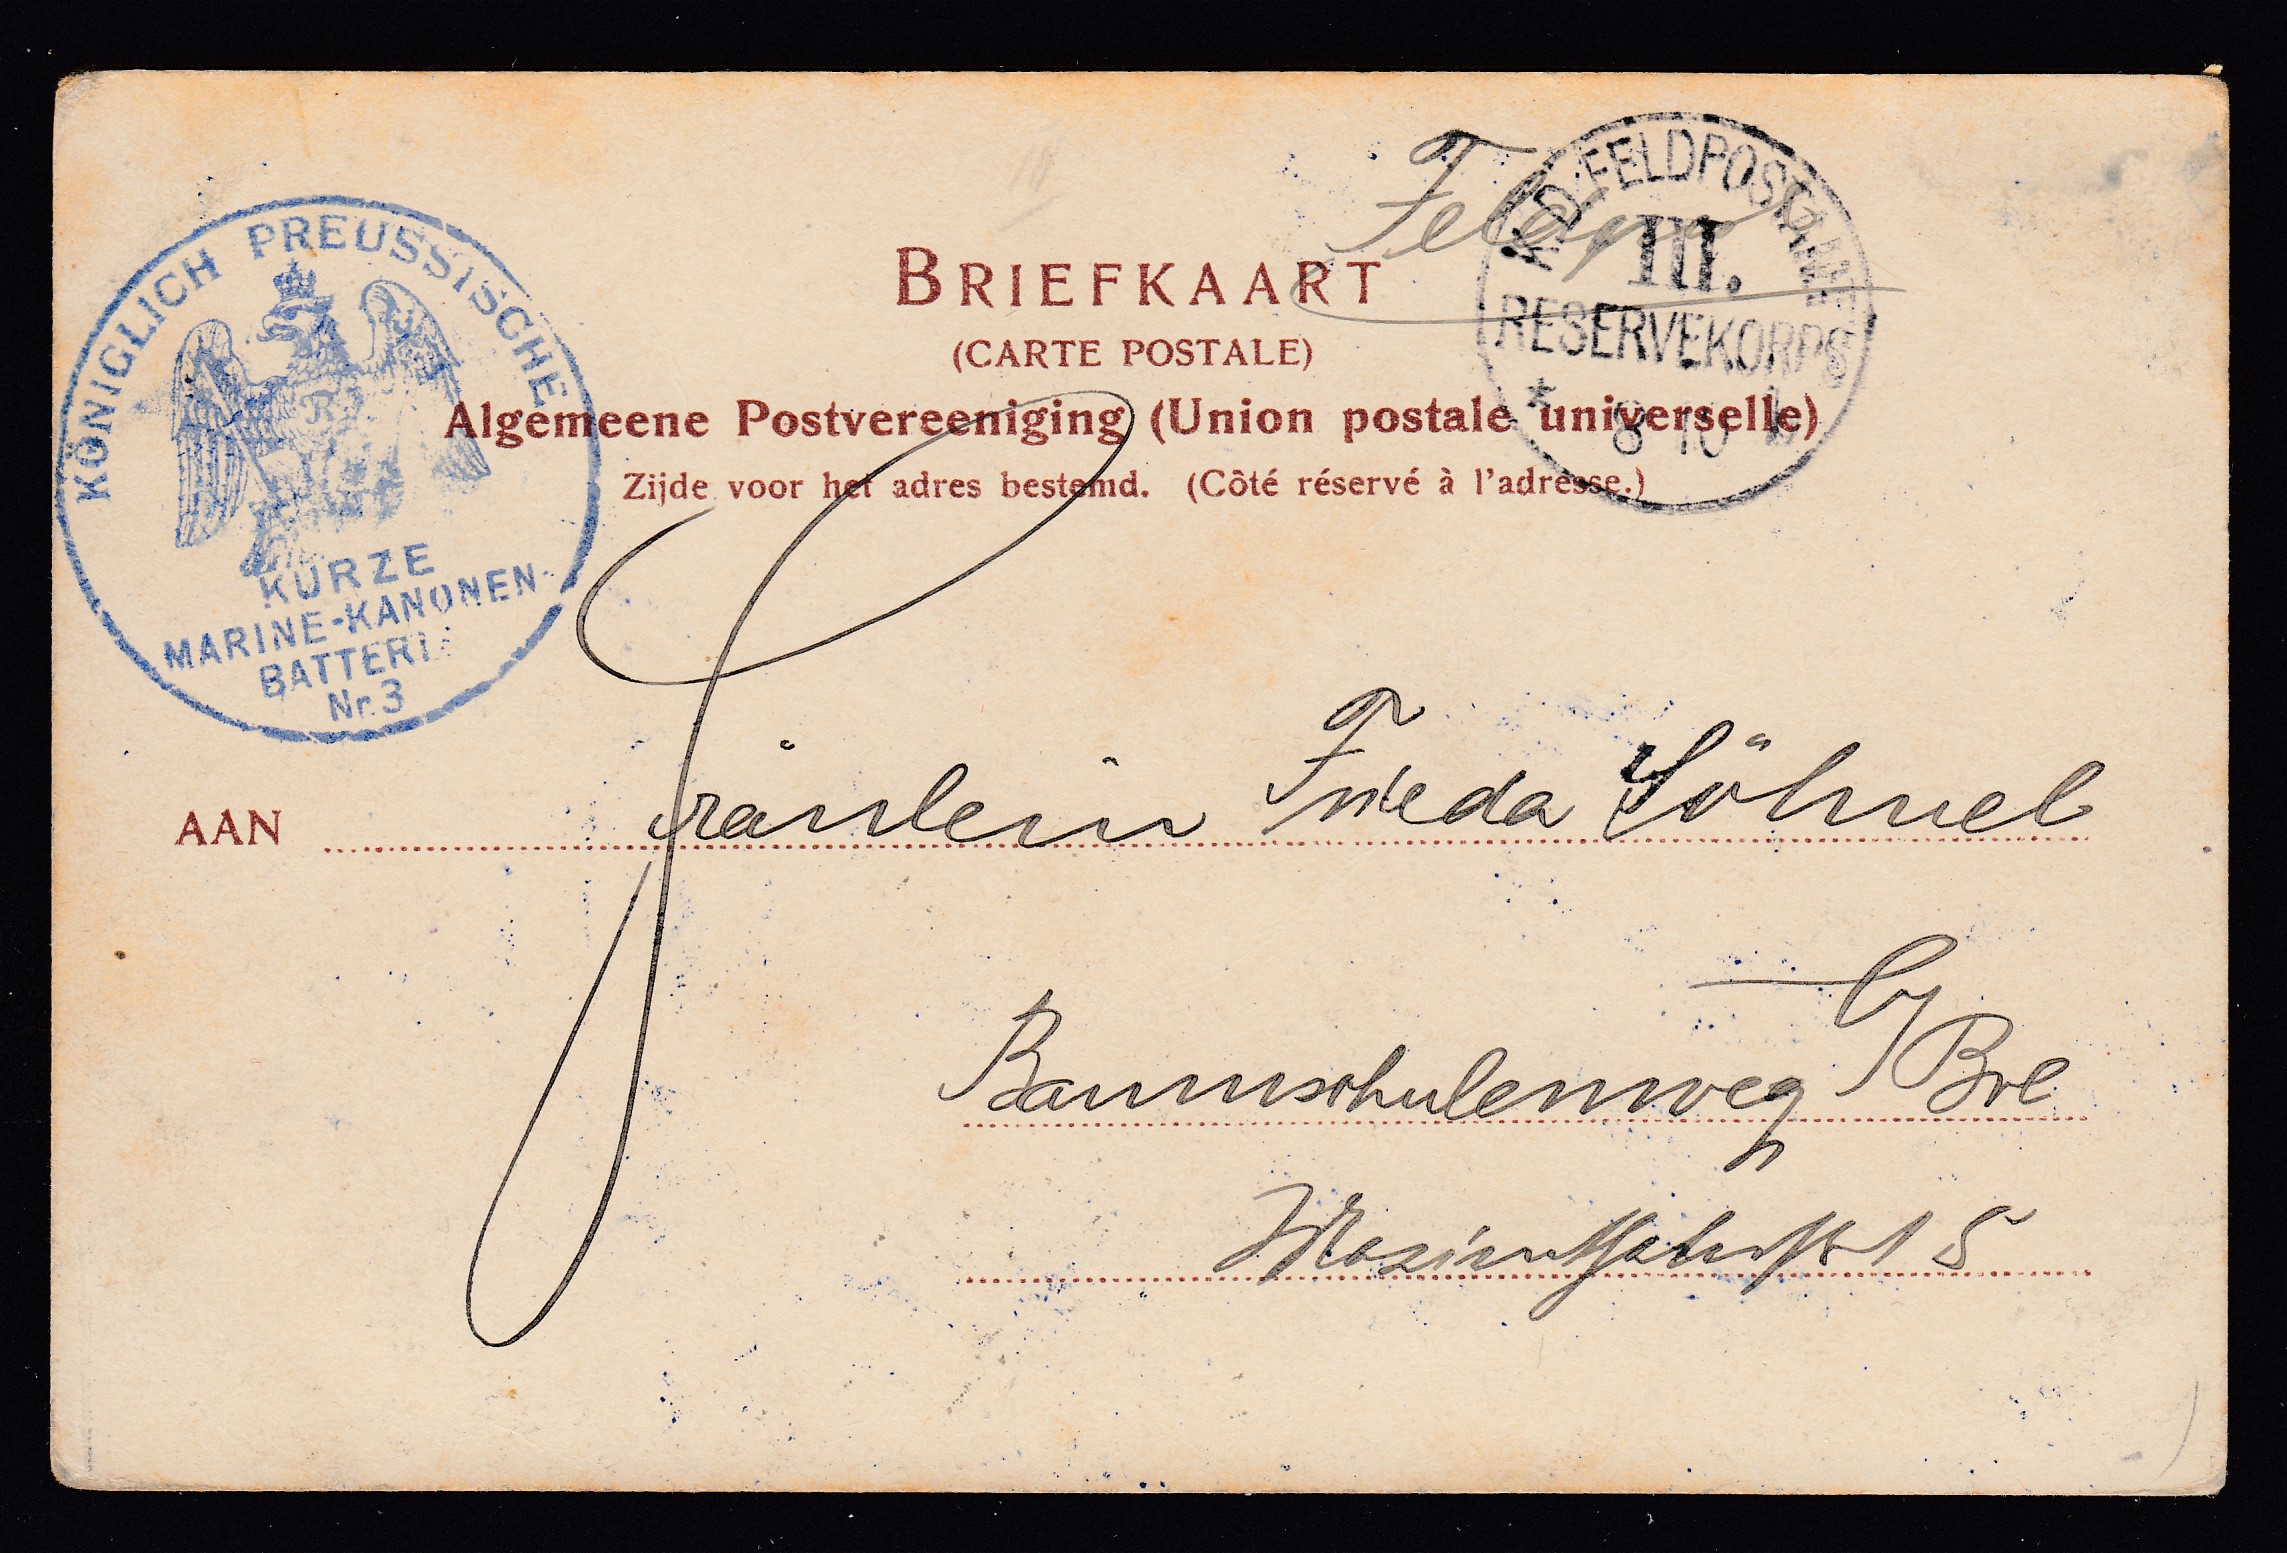 KÖNIGLICH PREUSSISCHE
KURZE
MARINE-KANONEN-
BATTERI
Nr. 3
K.D. FELDPOSTAMT
III.
RESERVEKORPS
* 8 10
BRIEFKAART
(CARTE POSTALE)
Algemeene Postvereeniging (Union postale universelle)
Zijde voor het adres bestemd. (Côté réservé à l'adresse.)
AAN Fräulein Frieda Söhnel
Baumschulenweg b/Brl
15